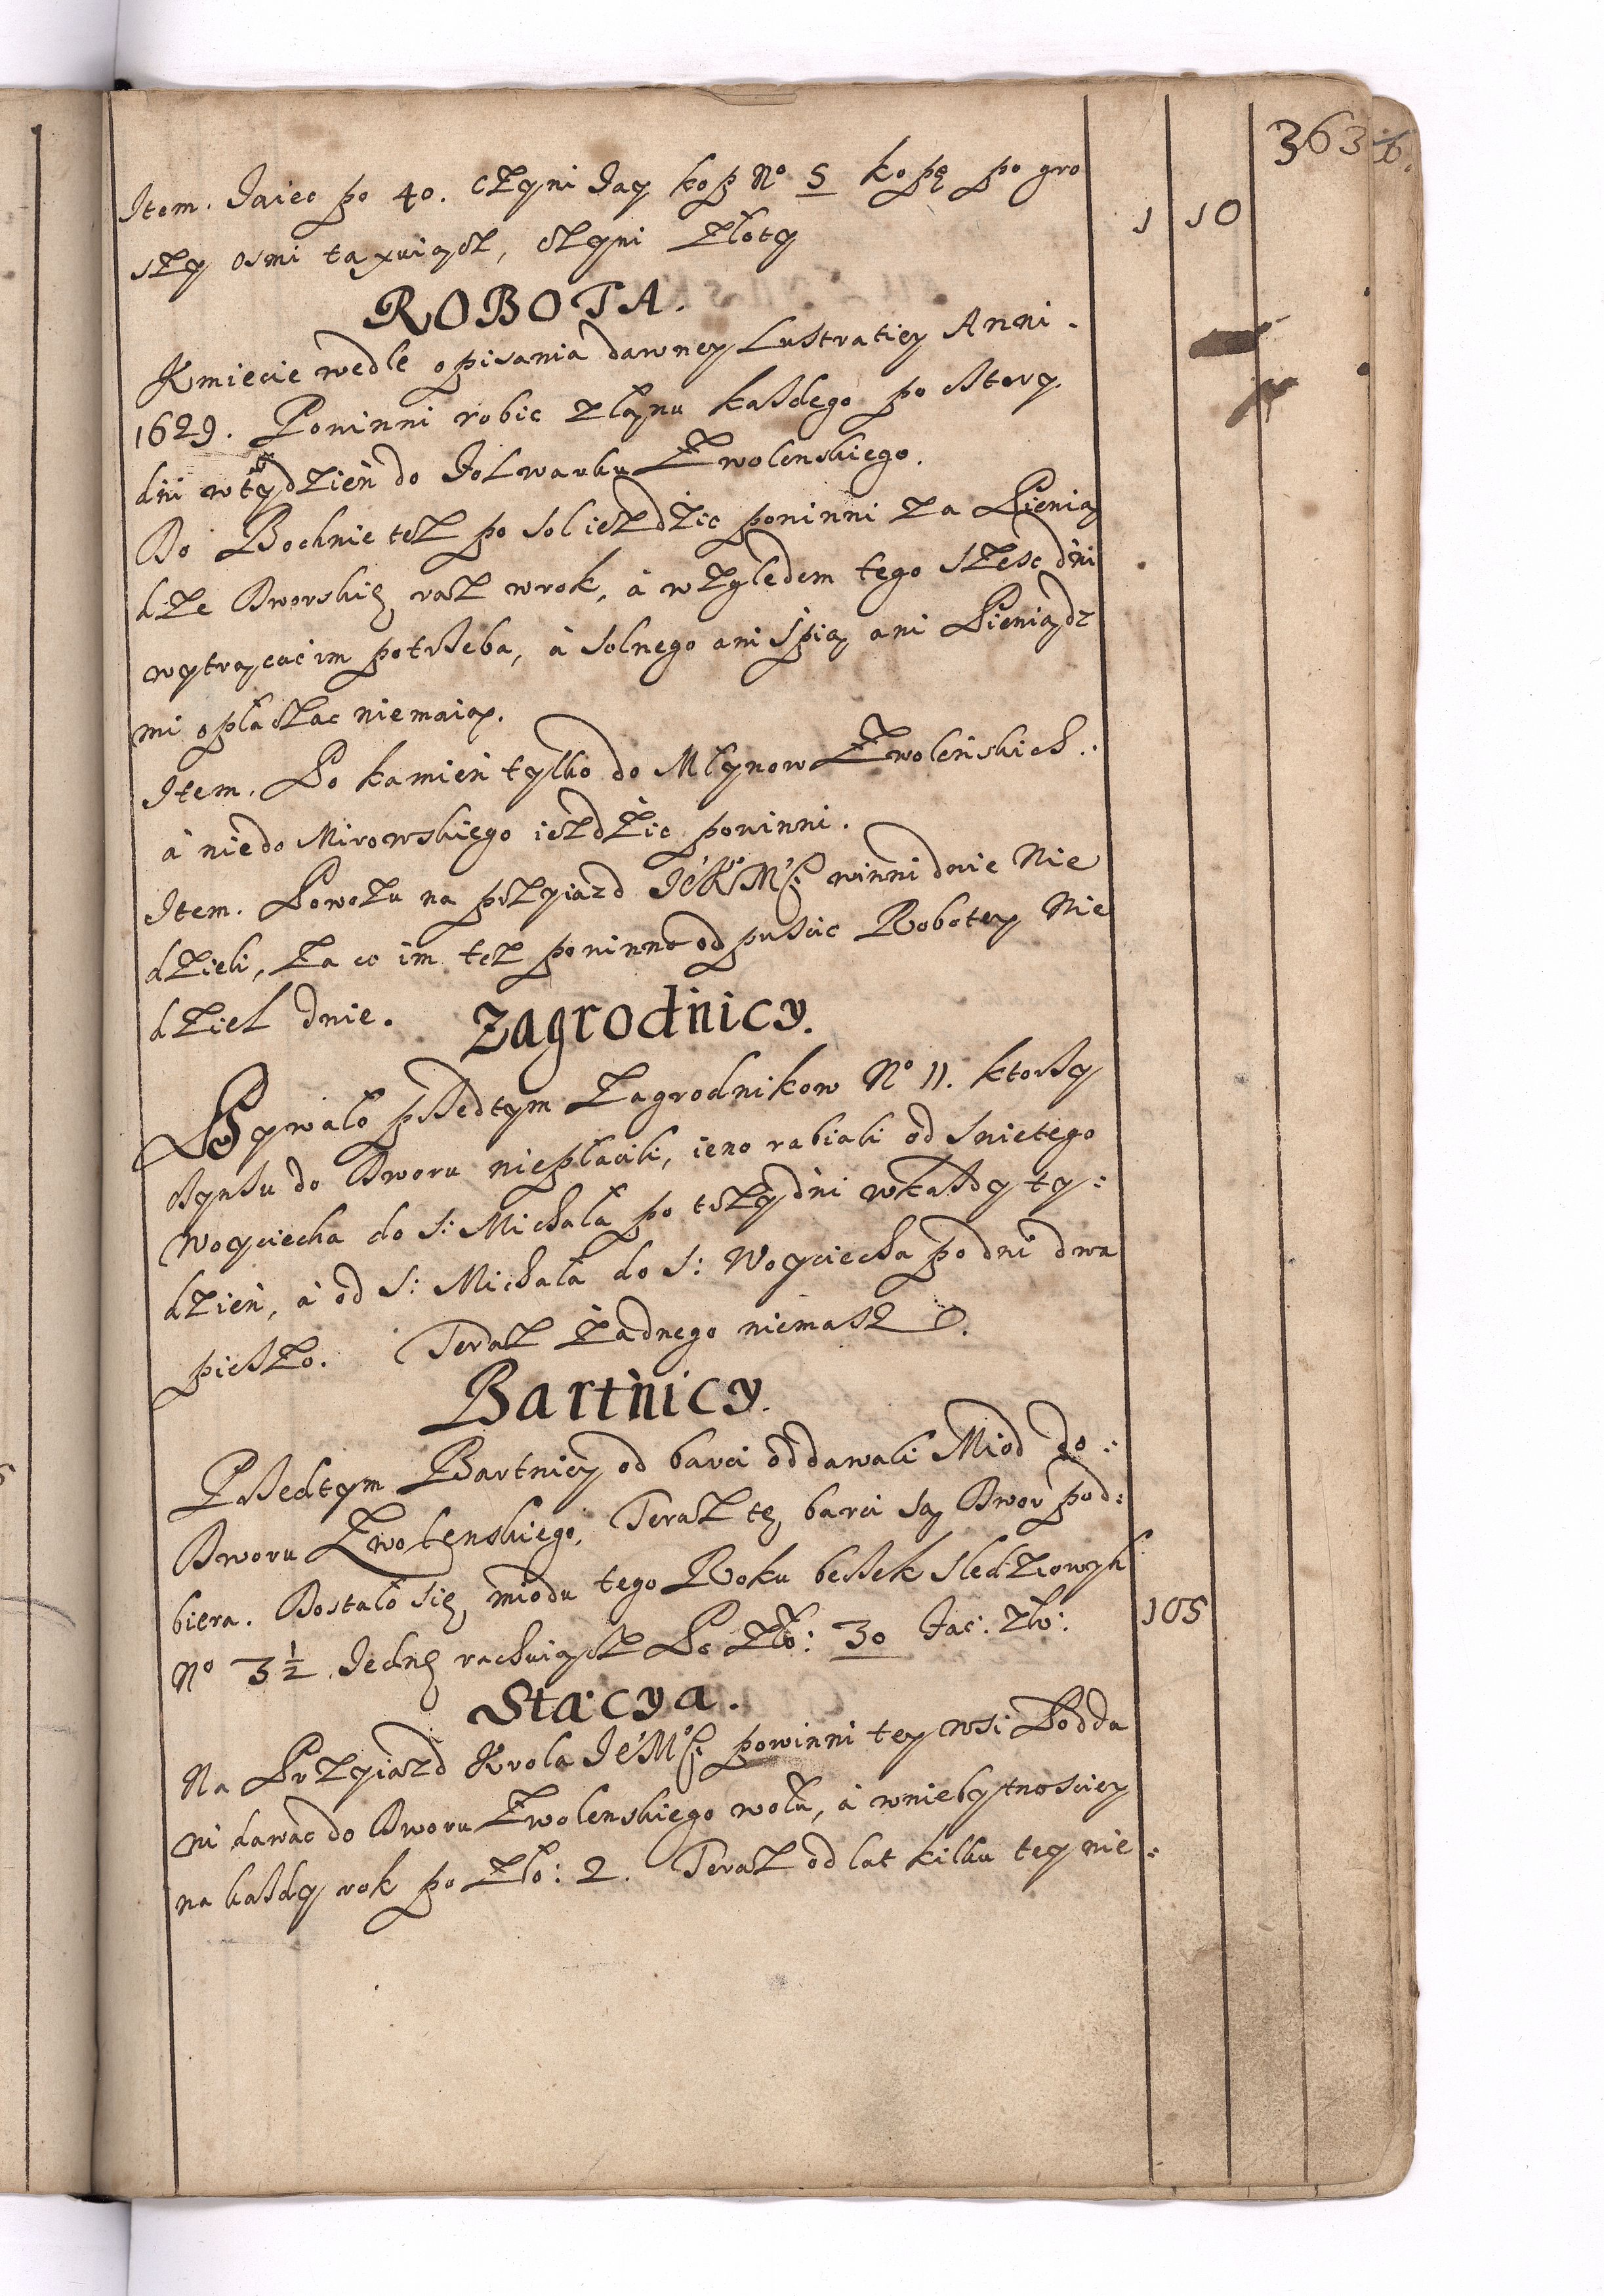 363
Item. Jaiec po 40. czyni Jay kop No 5 kopę po gro
szy osmi taxuiącz, czyni złoty 1 10
ROBOTA.
Kmiecie wedle opisania dawney Lustratiey Anni.
1629. Powinni robic złanu każdego po cztery
dni w tydzień do Folwarku Zwolenskiego.
Do Bochnie tez po sol iezdzic powinni za Pienią
dze Dworskie, raz w rok, à względem tego szesc dni
wytrącac im potrzeba, à solnego ani spią ani Pieniądz
mi opłaczac niemaią.
Item. Po kamień tylko do Młynow Zwoleńskich.
à nie do Mirowskiego iezdzic powinni.
Item. Powozu na przyiazd JeKMsci winni dwie Nie
dzieli, za co im tez powinno odpuscic Robotey Nie
dziel dwie.
Zagrodnicy.
Bywało przedtym Zagrodnikow No 11. ktorzy
czynszu do Dworu niepłacili, ieno rabiali od Swietego
Woyciecha do S: Michała po trzy dni w kazdy ty:
dzień, à od S: Michała do S: Woyciecha po dni dwa
pieszo. Teraz żadnego niemasz.
Bartnicy.
Przedtym Bartnicy od barci oddawali Miod do:
Dworu Zwolenskiego. Teraz te barci są Dwor pod:
biera. Dostało się miodu tego Roku beczek sledziowych
No 3½. Jednę rachuiącz Po Zło: 30 fac: Zło: 105
Stacya.
Na Przyiazd Krola JeMsci powinni tey wsi Podda
ni dawac do Dworu Zwolenskiego wołu, à w niebytnosciey
na kazdy rok po Zło: 2. Teraz od lat kilku tey nie: